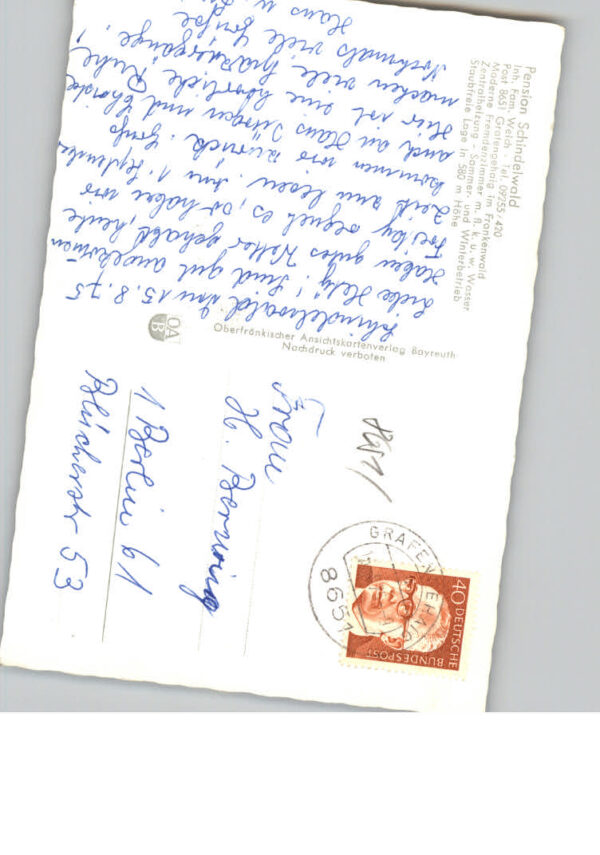 Pension Schindelwald
Inh. Fam. Welch · Tel. 09255/420
Post 8651 Grafengehaig im Frankenwald
Moderne Fremdenzimmer m. fl. k. u. w. Wasser
Zentralheizung - Sommer- und Winterbetrieb
Staubfreie Lage in 580 m Höhe
Schindelwald den 15.8.75
Liebe Helg! Sind gut angekommen
haben gutes Wetter gehabt, heute
Freitag regnet es, so haben wir
Zeit zum lesen. Am 1. September
kommen wir zurück. Gruß
auch an Hans Jürgen und
Hier ist eine herrliche Ruhe,
machen viele Spaziergänge!
Nochmals viele Grüße
Hans u.
OA
B
Oberfränkischer Ansichtskartenverlag Bayreuth
Nachdruck verboten
8651
GRAFENGEHAIG
8651
40 DEUTSCHE
BUNDESPOST
Frau
H. Benning
1 Berlin 61
Blücherstr 53